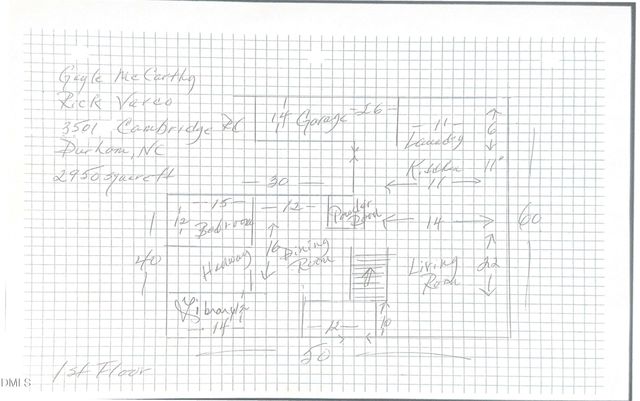 Gayle McCarthy
Rick Varco
3501 Cambridge Rd
Durham, NC
2950 square ft
14 Garage 26
11
Laundry
6
Kitchen
11
11
30
15
12
12
Bedroom
Powder
Room
14
60
40
Hallway
16
Dining
Room
Living
Room
22
Library
12
14
12
10
50
1st Floor
DMLS